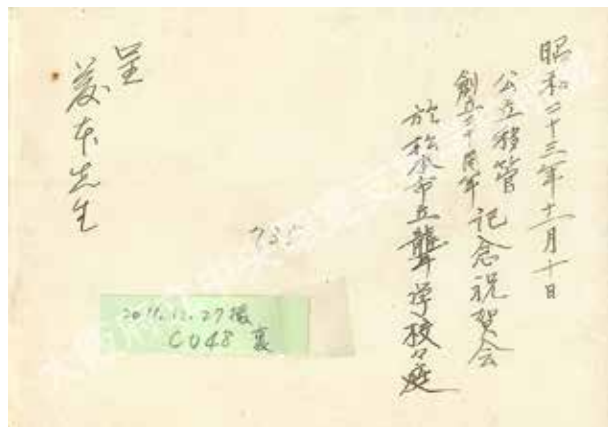 昭和二十三年十一月十日
公立移管
創立二十周年
記念祝賀会
於松本市立聾学校々庭
呈
藤本先生
735
2011.12.27撮
CU48 裏